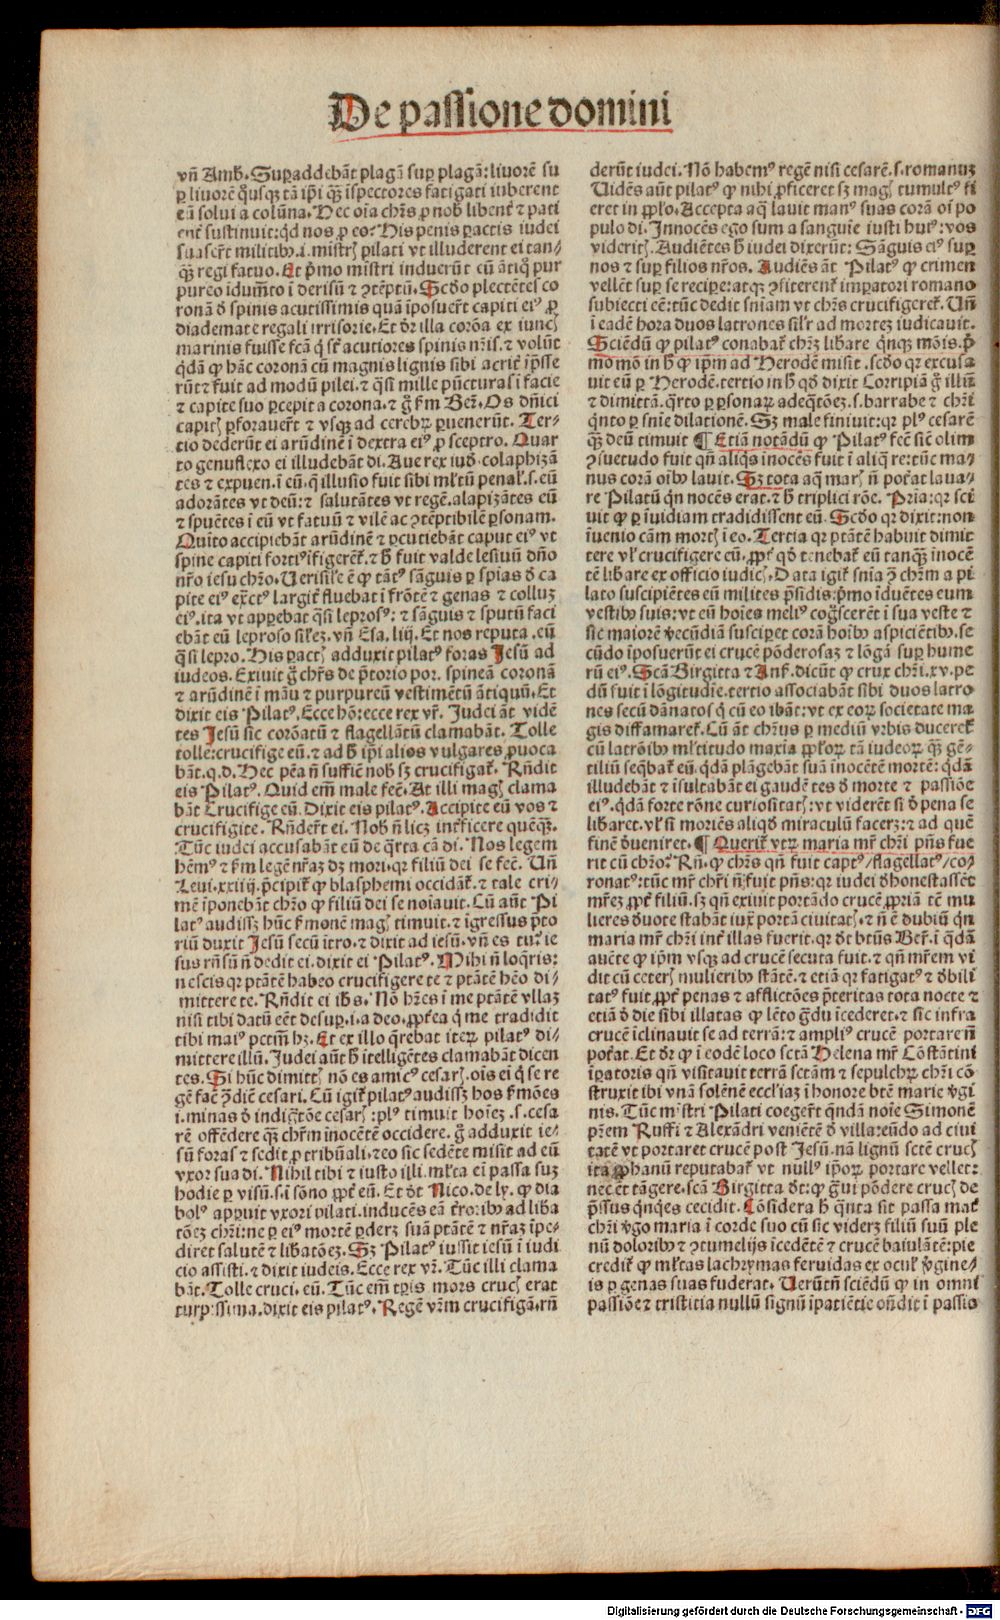 De passione domini
vn̄ Amb̄. Suꝑaddebāt plagā suꝑ plagā: liuorē su
ꝑ liuorē q̇usqꝫ tā ip̄i qꝫ īspectores fatigati iuberent
eā solui a colūna. Hec oīa chr̄s ꝓ nob̄ libent̄ ⁊ pati
ent̄ sustinuit: qd nos ꝓ eo? His penis ꝑactis iudei
suaser̄t militibꝰ .i. mistrꝭ pilati vt illuderent ei tan⸗
qꝫ regi fatuo. Et p̄mo mīstri induerūt eū ātiq̄ pur
pureo idumēto ī derisū ⁊ ꝯtēptū. Scd̄o plectētes co
ronā d̄ spinis acutissimis quā īposuer̄t capiti eiꝰ ꝓ
diademate regali irrisorie. Et dr̄ illa corōa ex iuncꝭ
marinis fuisse fcā q̇ st̄ acutiores spinis nr̄is. ⁊ volūt
q̇dā ꝙ hāc coronā cū magnis lignis sibi acrit̄ īp̄sse
rūt ⁊ fuit ad modū pilei. ⁊ q̄si mille pūcturas ī facie
⁊ capite suo ꝑcepit a corona. ⁊ g̊ ẜm Ber̄. Os dn̄ici
capitꝭ ꝑforauer̄t ⁊ vsqꝫ ad cerebꝝ ꝑuenerūt. Ter⸗
tio dederūt ei arūdinē ī dextra eiꝰ ꝓ sceptro. Quar
to genuflexo ei illudebāt di. Aue rex iud̄. colaphizā
tes ⁊ expuen. ī eū. q̄ illusio fuit sibi ml̄tū penal̄. s. eū
adorātes vt deū: ⁊ salutātes vt regē. alapizātes eū
⁊ spuētes ī eū vt fatuū ⁊ vilē ac ꝯtēptibilē ꝑsonam.
Quīto accipiebāt arūdinē ⁊ ꝑcutiebāt caput eiꝰ vt
spine capiti fortiꝰ īfigerēt̄. ⁊ h̄ fuit valde lesiuū dn̄o
nr̄o iesu chr̄o. Uerisil̄e ē ꝙ tātꝰ sāguis ꝑ spias d̄ ca
pite eiꝰ ex̄ctꝰ largit̄ fluebat ī frōtē ⁊ genas ⁊ colluꝫ
eiꝰ. ita vt apꝑebat q̄si leprosꝰ: ⁊ sāguis ⁊ sputū faci
ebāt eū leproso sil̄eꝫ. vn̄ Esa. liij. Et nos reputa. eū
q̄si lepro. His ꝑactꝭ adduxit pilatꝰ foras Jesū ad
iudeos. Exiuit g̊ chr̄s de p̄torio por. spineā coronā
⁊ arūdinē ī māu ⁊ purpureū vestimētū ātiquū. Et
dixit eis Pilatꝰ. Ecce hō: ecce rex vr̄. Judei āt vidē
tes Jesū sic corōatū ⁊ flagellātū clamabāt. Tolle
tolle: crucifige eū. ⁊ ad h̄ ip̄i alios vulgares ꝓuoca
bāt. q. d. Hec pēa n̄ suffic̄ nob̄ sꝫ crucifigat̄. Rn̄dit
eis Pilatꝰ. Quid em̄ male fec̄. At illi magꝭ clama
bāt Crucifige eū. Dixit eis pilatꝰ. Accipite eū vos ⁊
crucifigite. Rn̄der̄t ei. Nob̄ n̄ licꝫ int̄ficere quēqꝫ.
Tūc iudei accusabāt eū de q̄rta cā di. Nos legem
hēmꝰ ⁊ ẜm legē nr̄aꝫ dꝫ mori. qr filiū dei se fec̄. Un̄
Leui. xxiiij. p̄cipit̄ ꝙ blasphemi occidāt̄. ⁊ tale cri⸗
mē īponebāt chr̄o ꝙ filiū dei se noīauit. Cū aūt Pi
latꝰ audissꝫ hūc ẜmonē magꝭ timuit. ⁊ īgressus p̄to
riū duxit Jesū secū ītro. ⁊ dixit ad iesū. vn̄ es tu? ie
sus rn̄sū n̄ dedit ei. dixit ei Pilatꝰ. Mihi n̄ loq̄ris:
nescis qr ptātē habeo crucifigere te ⁊ ptātē hēo di⸗
mittere te. Rn̄dit ei ih̄s. Nō hr̄es ī me ptātē vllaꝫ
nisi tibi datū eēt desuꝑ. i. a deo. ꝓpt̄ea q̇ me tradidit
tibi maiꝰ pctm̄ hꝫ. Et ex illo q̄rebat iteꝝ pilatꝰ di⸗
mittere illū. Judei aūt h̄ ītelligētes clamabāt dicen
tes. Si hūc dimittꝭ nō es amicꝰ cesarꝭ. oīs ei q̇ se re
gē facͥ ꝯdic̄ cesari. Cū igit̄ pilatꝰ audissꝫ hos ẜmōes
.i. minas d̄ indigtōe cesarꝭ: plꝰ timuit hoīeꝫ .s. cesa
rē offēdere qꝫ chr̄m īnocētē occidere. g̊ adduxit ie⸗
sū foras ⁊ sedit ꝓ tribūali. ⁊ eo sic sedēte misit ad eū
vxor sua di. Nihil tibi ⁊ iusto illi. ml̄ta ei passa suꝫ
hodie ꝑ visū. s. ī sōno ꝓpt̄ eū. Et dt̄ Nico. de ly. ꝙ dia
bolꝰ apꝑuit vxori pilati. inducēs eā t̄roribꝰ ad liba
tōeꝫ chr̄i: ne ꝑ eiꝰ mortē ꝑderꝫ suā ptātē ⁊ nr̄aꝫ īpe⸗
diret salutē ⁊ libatōeꝫ. Sꝫ Pilatꝰ iussit iesū ī iudi
cio assisti. ⁊ dixit iudeis. Ecce rex vr̄. Tūc illi clama
bāt. Tolle cruci. eū. Tūc em̄ tꝑis mors crucꝭ erat
turpissima. dixit eis pilatꝰ. Regē vr̄m crucifigā. rn̄
derūt iudei. Nō habemꝰ regē nisi cesarē. s. romanuꝫ
Uidēs aūt pilatꝰ ꝙ nihil ꝓficeret sꝫ magꝭ tumultꝰ fi
eret in ppl̄o. Accepta aq̄ lauit manꝰ suas corā oī po
pulo di. Innocēs ego sum a sanguīe iusti huiꝰ: vos
videritꝭ. Audiētes h̄ iudei dixerūt: Sāguis eiꝰ suꝑ
nos ⁊ suꝑ filios nr̄os. Audiēs āt Pilatꝰ ꝙ crimen
vellēt suꝑ se reciꝑe: atqꝫ ꝯfiterent̄ imꝑatori romano
subiecti eē: tūc dedit sn̄iam vt chr̄s crucifigeret̄. Un̄
ī eadē hora duos latrones sil̄r ad morteꝫ iudicauit.
Sciēdū ꝙ pilatꝰ conabat̄ chr̄ꝫ libare q̄nqꝫ mōis. p̄
mo mō in h̄ ꝙ ip̄m ad Herodē misit. scd̄o qr excusa
uit eū ꝑ Herodē. tertio in h̄ qd̄ dixit Corripiā g̊ illū
⁊ dimittā. q̄rto ꝑ ꝑsonaꝝ adeq̄tōeꝫ. s. barrabe ⁊ chr̄i
q̄nto ꝑ snīe dilationē. Sꝫ male finiuit: qr plꝰ cesarē
qꝫ deū timuit ¶ Etiā notādū ꝙ Pilatꝰ fec̄ sic̄ olim
ꝯsuetudo fuit qn̄ aliq̇s īnocēs fuit ī aliq̄ re: tūc ma⸗
nus corā oībꝰ lauit. Sꝫ tota aq̄ marꝭ n̄ pot̄at laua⸗
re Pilatū qn nocēs erat. ⁊ h̄ triplici rōe. Pria: qr sci
uit ꝙ ꝑ īuidiam tradidissent eū. Scd̄o qr dixit: non
īuenio cām mortꝭ ī eo. Tertia qr ptātē habuit dimit
tere vl̄ crucifigere eū. ꝓpt̄ qd̄ tenebat̄ eū tanqꝫ īnocē
tē libare ex officio iudicꝭ. Data igit̄ snīa ꝯ chr̄m a pi
lato suscipiētes eū milites p̄sidis: p̄mo īduētes eum
vestibꝰ suis: vt eū hoīes meliꝰ cog̊scerēt ī sua veste ⁊
sic maiorē v̄ecūdiā susciꝑet corā hoībꝰ aspiciētibꝰ. se
cūdo īposuerūt ei crucē pōderosaꝫ ⁊ lōgā suꝑ hume
rū eiꝰ. Scā Birgitta ⁊ Ans̄. dicūt ꝙ crux chr̄i. xv. pe
dū fuit ī lōgitudīe. tertio associabāt sibi duos latro
nes secū dānatos q̇ cū eo ibāt: vt ex eoꝝ societate ma
gis diffamaret̄. Cū āt chr̄us ꝑ mediū vrbis duceret̄
cū latrōibꝰ ml̄titudo maxia ppl̄oꝝ tā iudeoꝝ qꝫ gē⸗
tiliū seq̄bat̄ eū. q̇dā plāgebāt suā īnocētē mortē: q̇dā
illudebāt ⁊ īsultabāt ei gaudētes d̄ morte ⁊ passiōe
eiꝰ. q̇dā forte rōne curiositatꝭ: vt viderēt si d̄ pena se
libaret. vl̄ si moriēs aliqd̄ miraculū facerꝫ: ⁊ ad quē
finē d̄ueniret. ¶ Querit̄ vtꝝ maria mr̄ chr̄i pn̄s fue
rit cū chr̄o? Rn̄. ꝙ chr̄s qn̄ fuit captꝰ/ flagellatꝰ/ co⸗
ronatꝰ: tūc mr̄ chr̄i n̄ fuit pn̄s: qr iudei d̄honestassēt
mr̄eꝫ ꝓpt̄ filiū. sꝫ qn̄ exiuit portādo crucē ꝓpriā tē mu
lieres d̄uote stabāt iux̄ portā ciuitatꝭ. ⁊ n̄ ē dubiū qn
maria mr̄ chr̄i int̄ illas fuerit. qr dt̄ btūs Ber̄. ī q̇dā
auētē ꝙ ip̄m vsqꝫ ad crucē secuta fuit. ⁊ qn̄ mr̄em vi
dit cū ceterꝭ mulieribꝰ stātē. ⁊ etiā qr fatigatꝰ ⁊ d̄bili
tatꝰ fuit ꝓpt̄ penas ⁊ afflictōes p̄teritas tota nocte ⁊
etiā d̄ die sibi illatas ꝙ lēto g̊du īcederet. ⁊ sic infra
crucē īclinauit se ad terrā: ⁊ ampliꝰ crucē portare n̄
pot̄at. Et dt̄ ꝙ ī eodē loco sctā Helena mr̄ Cōstātini
īꝑatoris qn̄ visitauit terrā sctām ⁊ sepulchꝝ chr̄i cō
struxit ibi vnā solēnē eccl̄iaꝫ ī honore btē marie v̄gi
nis. Tūc mīstri Pilati coeger̄t quēdā noīe Simonē
pr̄em Ruffi ⁊ Alexādri veniētē d̄ villa: eūdo ad ciui
tatē vt portaret crucē post Jesū. nā lignū sctē crucꝭ
ita ꝓphanū reputabat̄ vt nullꝰ ip̄oꝝ portare vellet:
nec et tāgere. scā Birgitta dt̄: ꝙ g̊ui pōdere crucꝭ de
p̄ssus q̄nqes cecidit. Cōsidera h̄ q̄nta sit passa mat̄
chr̄i v̄go maria ī corde suo cū sic viderꝫ filiū suū ple
nū doloribꝰ ⁊ ꝯtumelijs īcedētē ⁊ crucē baiulātē: pie
credit̄ ꝙ ml̄tas lachrymas feruidas ex ocul̄ v̄gine⸗
is ꝑ genas suas fuderat. Uerūtn̄ sciēdū ꝙ in omni
passiōe ⁊ tristitia nullū signū īpatiētie oīdit ī passio
Digitalisierung gefördert durch die Deutsche Forschungsgemeinschaft - DFG